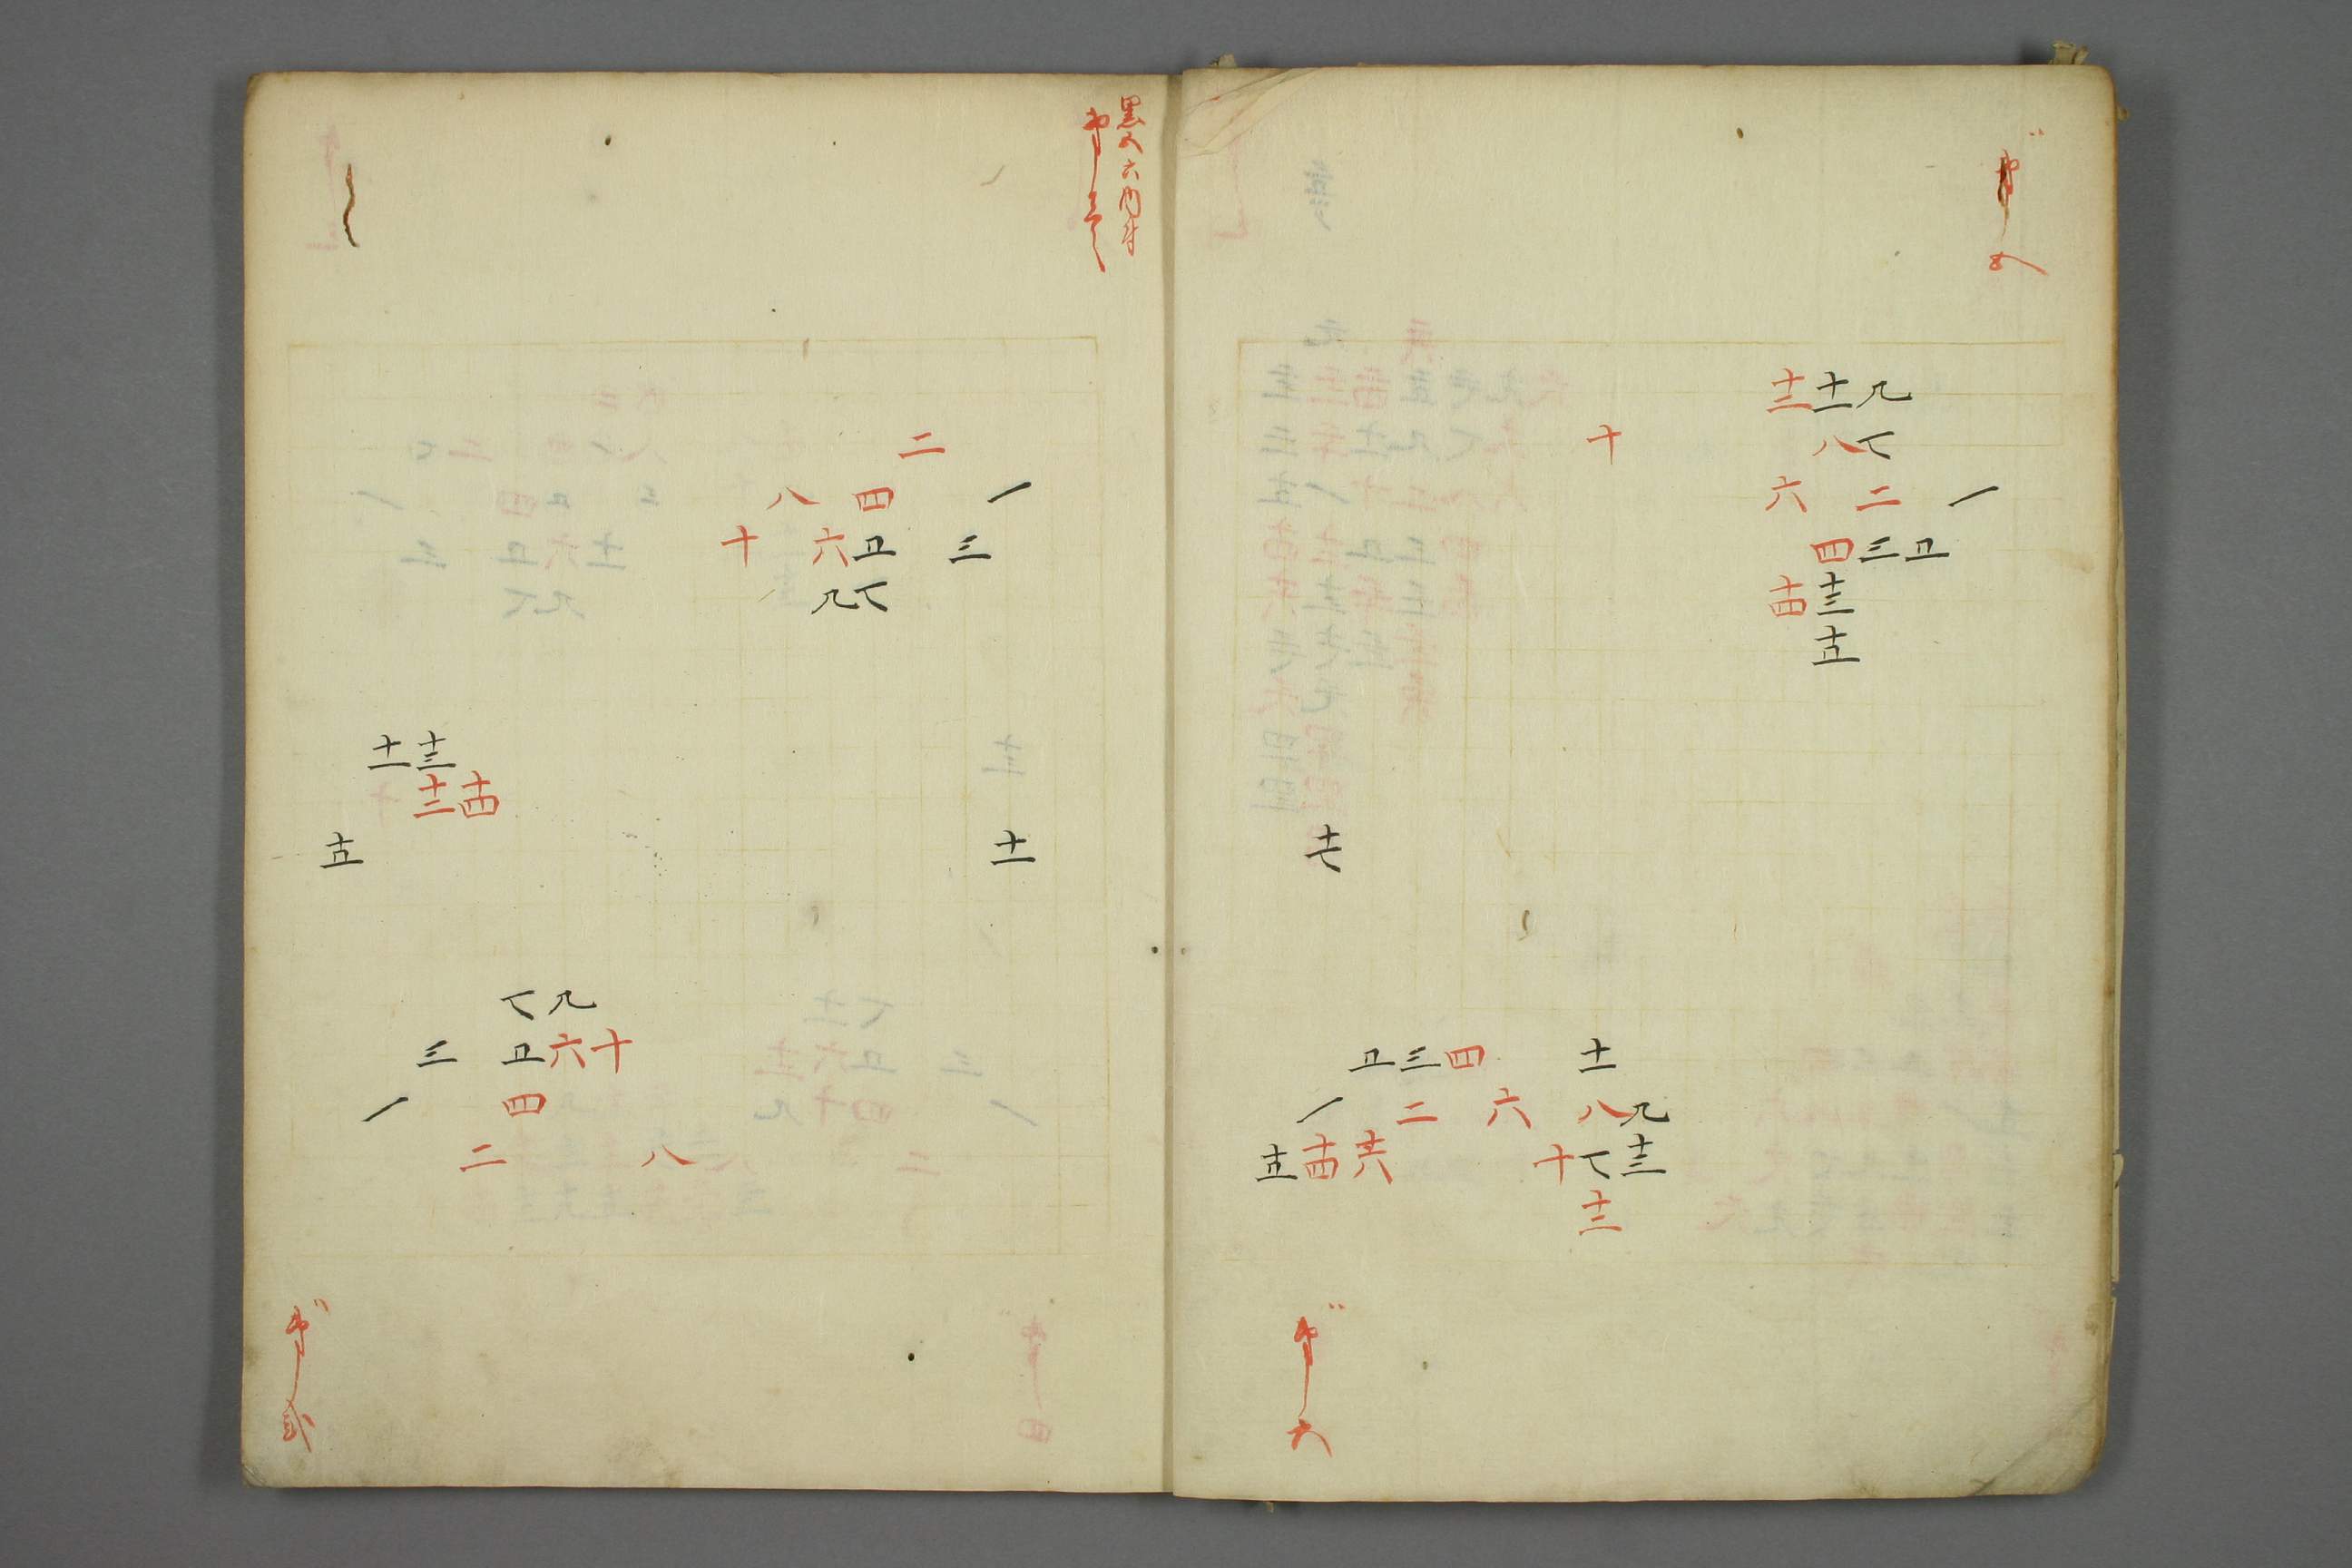 十三 十一 九
十 八 七
六 二 一
四 三 五
十四 十三
十五
十七
五 三 四 十一
一 二 六 八 九
十五 十四 十六 十 七 十三
十二
第六
二
八 四 一
十 六 五 三
九 七
十一 十三
十二 十四
十五 十一
七 九
三 五 六 十
一 四
二 八
第弐